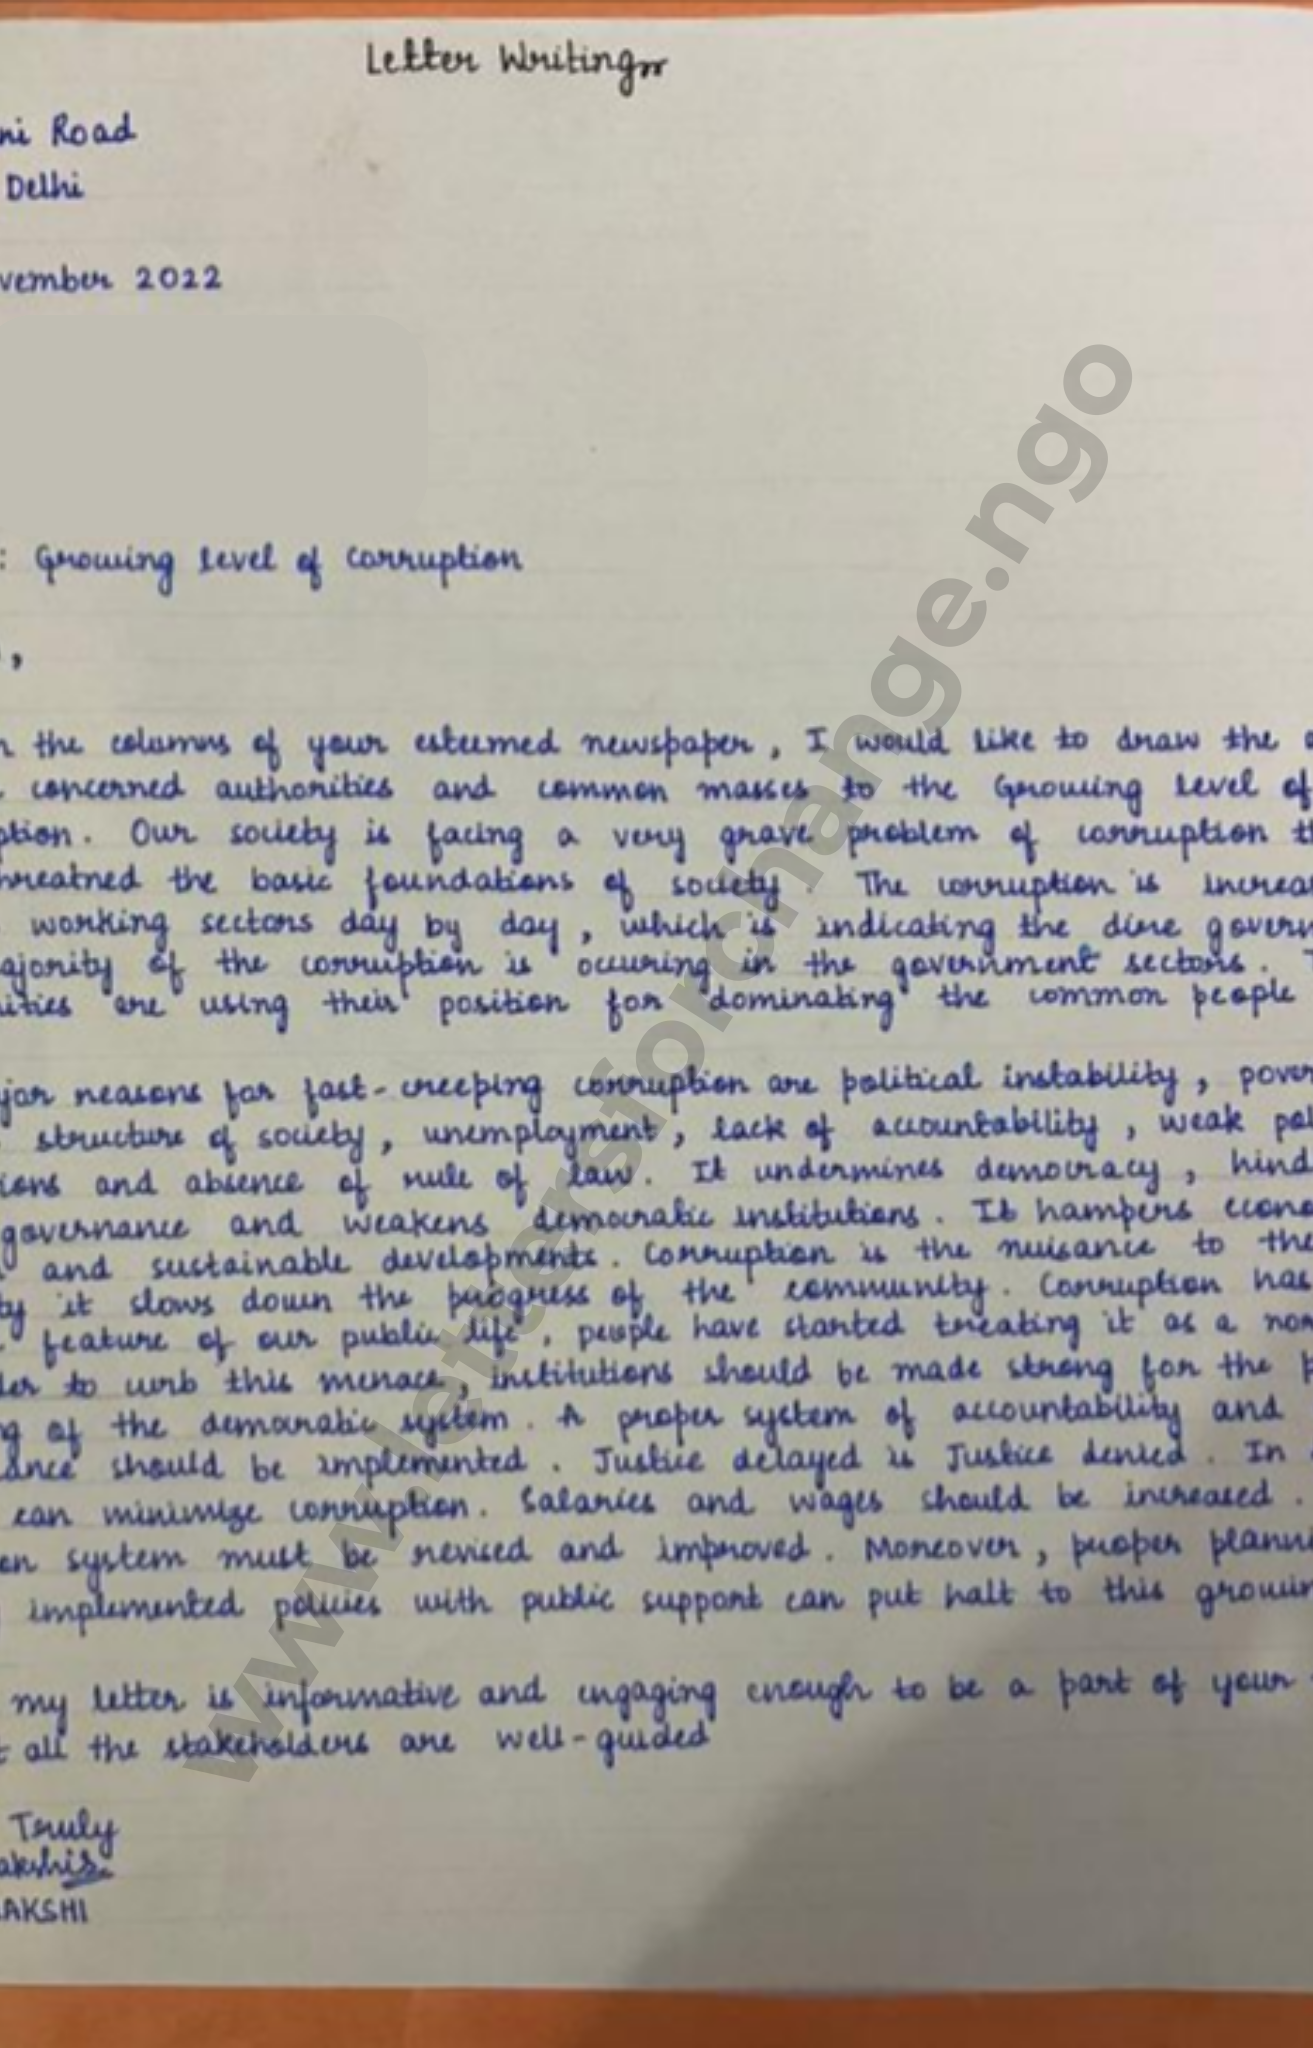 Letter Writing
ni Road
Delhi
vember 2022
: Growing level of Corruption
,
the columns of your esteemed newspaper, I would like to draw the
concerned authorities and common masses to the Growing level of
ption. Our society is facing a very grave problem of corruption th
hreatned the basic foundations of society. The corruption is increa
working sectors day by day, which is indicating the dire govern
ajority of the corruption is occuring in the government sectors. T
ities are using their position for dominating the common people
jor reasons for fast-creeping corruption are political instability, pover
structure of society, unemployment, lack of accountability, weak pol
ions and absence of rule of law. It undermines democracy, hind
governance and weakens democratic institutions. It hampers econo
and sustainable developments. Corruption is the nuisance to the
ty it slows down the progress of the community. Corruption has
feature of our public life, people have started treating it as a nor
der to curb this menace, institutions should be made strong for the p
ng of the democratic system. A proper system of accountability and
lance should be implemented. Justice delayed is Justice denied. In
can minimize corruption. Salaries and wages should be increased.
on system must be revised and improved. Moreover, proper plann
implemented policies with public support can put halt to this growin
my letter is informative and engaging enough to be a part of your
t all the stakeholders are well-guided
Truly
akshi
AKSHI
www.lettersforchange.ngo